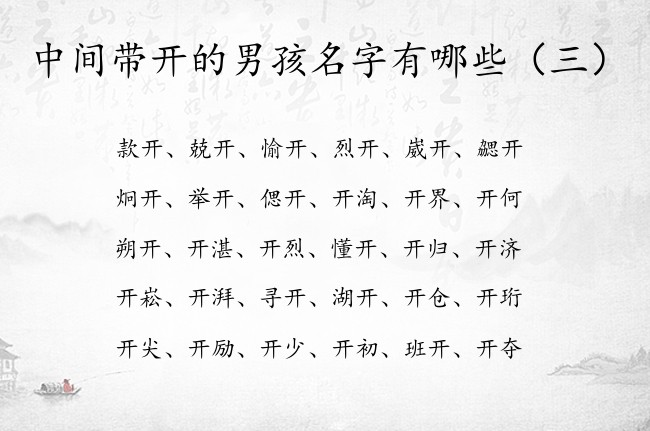 中间带开的男孩名字有哪些（三）
款开、兢开、愉开、烈开、崴开、勰开
炯开、举开、偲开、开淘、开界、开何
朔开、开湛、开烈、懂开、开归、开济
开崧、开湃、寻开、湖开、开仓、开珩
开尖、开励、开少、开初、班开、开夺